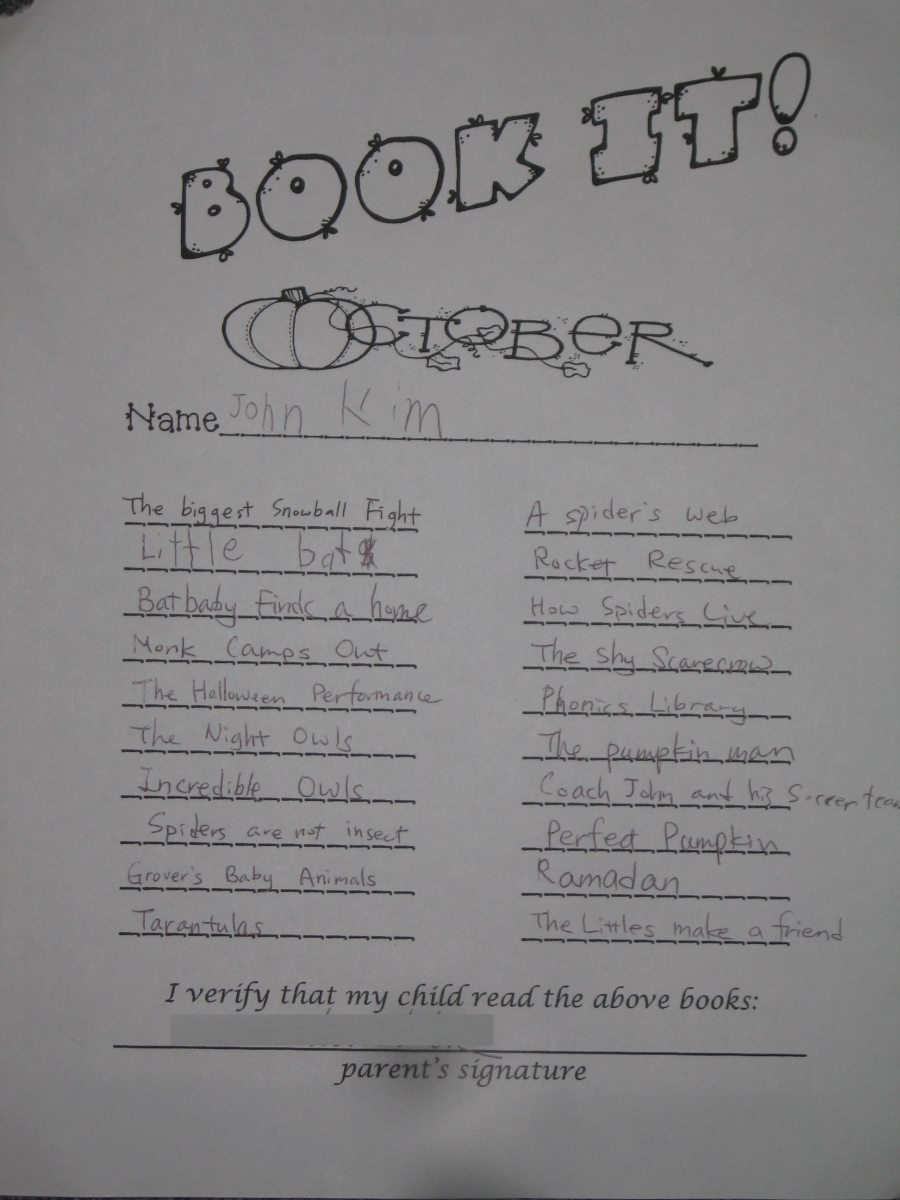 BOOK IT!
OCTOBER
Name John Kim
The biggest Snowball Fight
Little bats
Batbaby Finds a home
Monk Camps Out
The Halloween Performance
The Night Owls
Incredible Owls
Spiders are not insect
Grover's Baby Animals
Tarantulas
A spider's web
Rocket Rescue
How Spiders Live
The Shy Scarecrow
Phonics Library
The pumpkin man
Coach John and his Soccer team
Perfect Pumpkin
Ramadan
The Littles make a friend
I verify that my child read the above books:
parent's signature